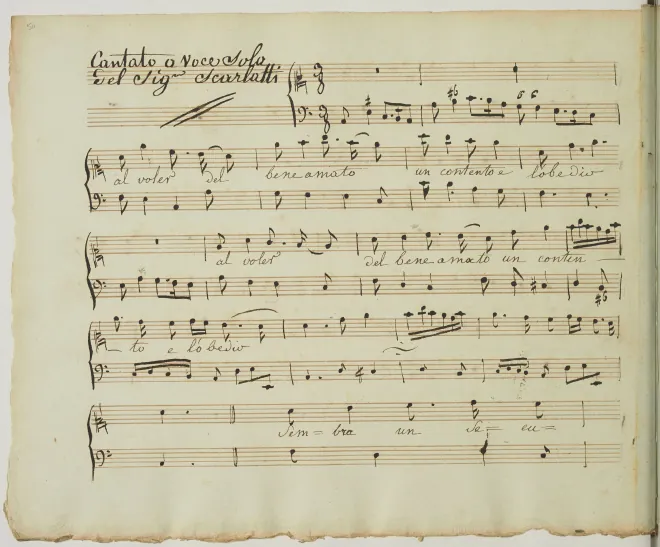 Cantata a Voce Sola
Del Sigr Scarlatti
al voler del bene amato un contento è l'obedir
al voler del bene amato un conten
to e l'obedir
Sem= bra un se= eu=